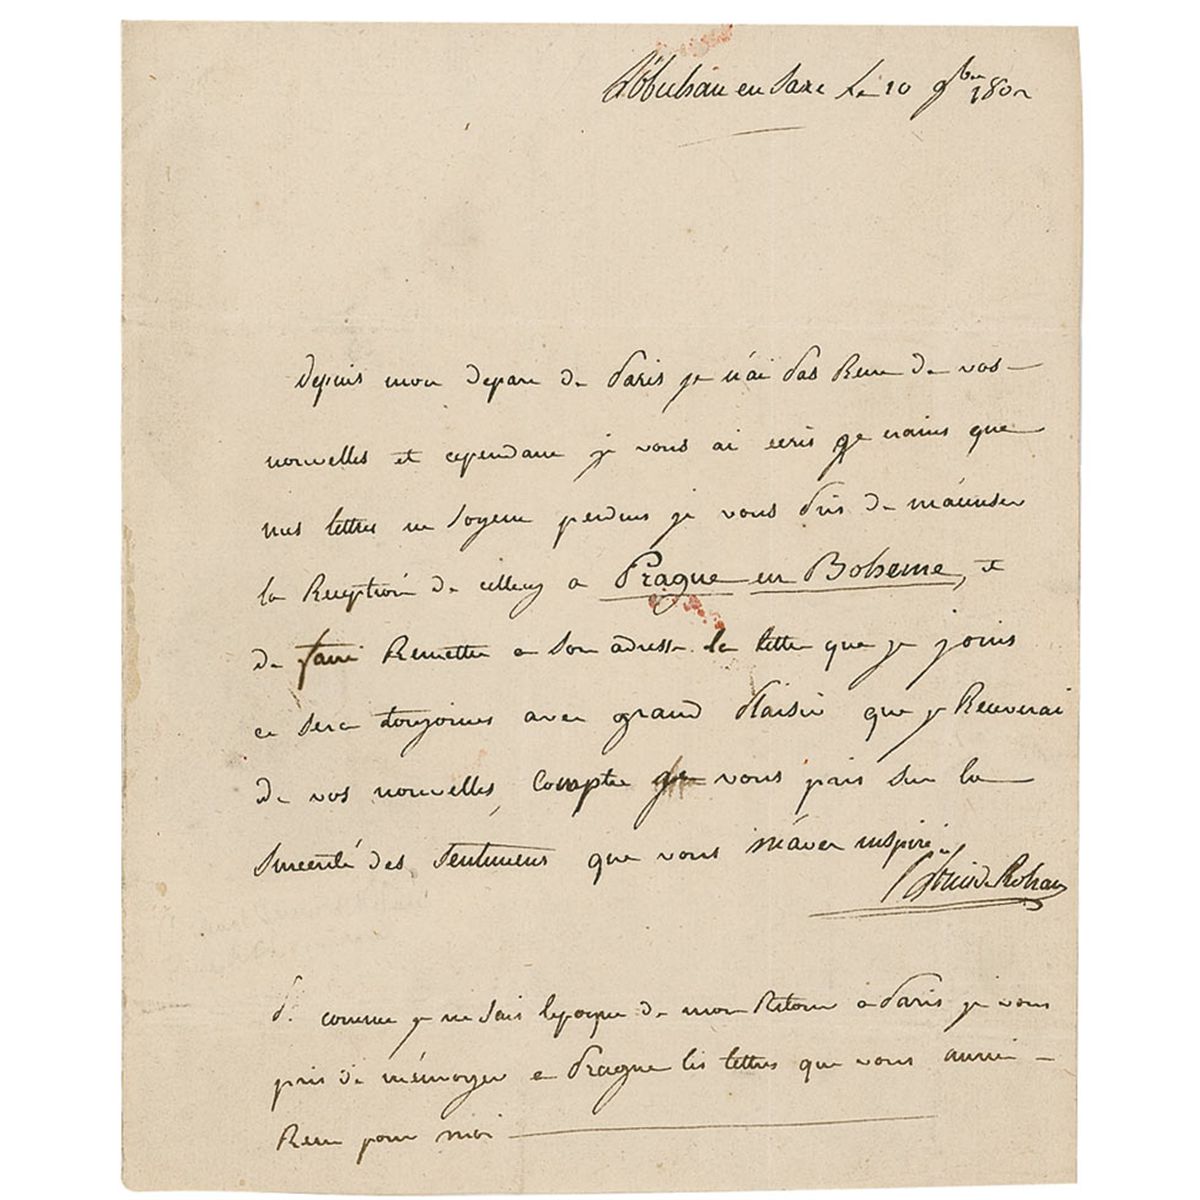 en Saxe Le 10 9bre 1802
depuis mon depart de Paris je n'ai pas Recu de vos
nouvelles et cependant je vous ai ecris je crains que
mes lettres ne soyent perdues je vous pris de m'acuser
la Reception de celle cy a Prague en Boheme, et
de faire Remettre a son adresse la lettre que je joins
ce sera toujours avec grand plaisir que je Receverai
de vos nouvelles, Compte je vous pris sur la
sincerité des sentimens que vous m'avez inspiré
Louis de Rohan
P. comme je ne sais l'epoque de mon Retour a Paris je vous
pris de m'envoyer a Prague les lettres que vous auriez
Recu pour moi